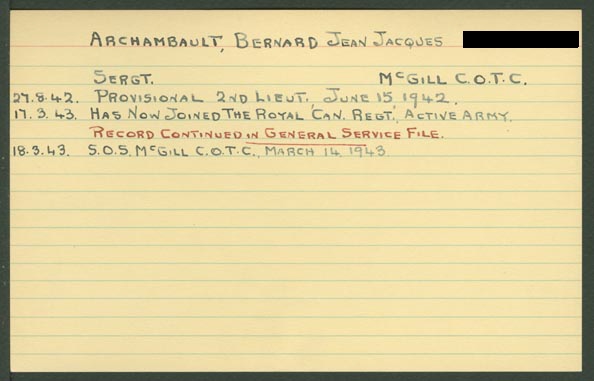 ARCHAMBAULT, BERNARD JEAN JACQUES
SERGT. McGILL C.O.T.C.
27.8.42. PROVISIONAL 2ND LIEUT., JUNE 15, 1942.
17.3.43. HAS NOW JOINED THE ROYAL CAN. REGT., ACTIVE ARMY.
RECORD CONTINUED IN GENERAL SERVICE FILE.
18.3.43. S.O.S. McGILL C.O.T.C., MARCH 14, 1943.